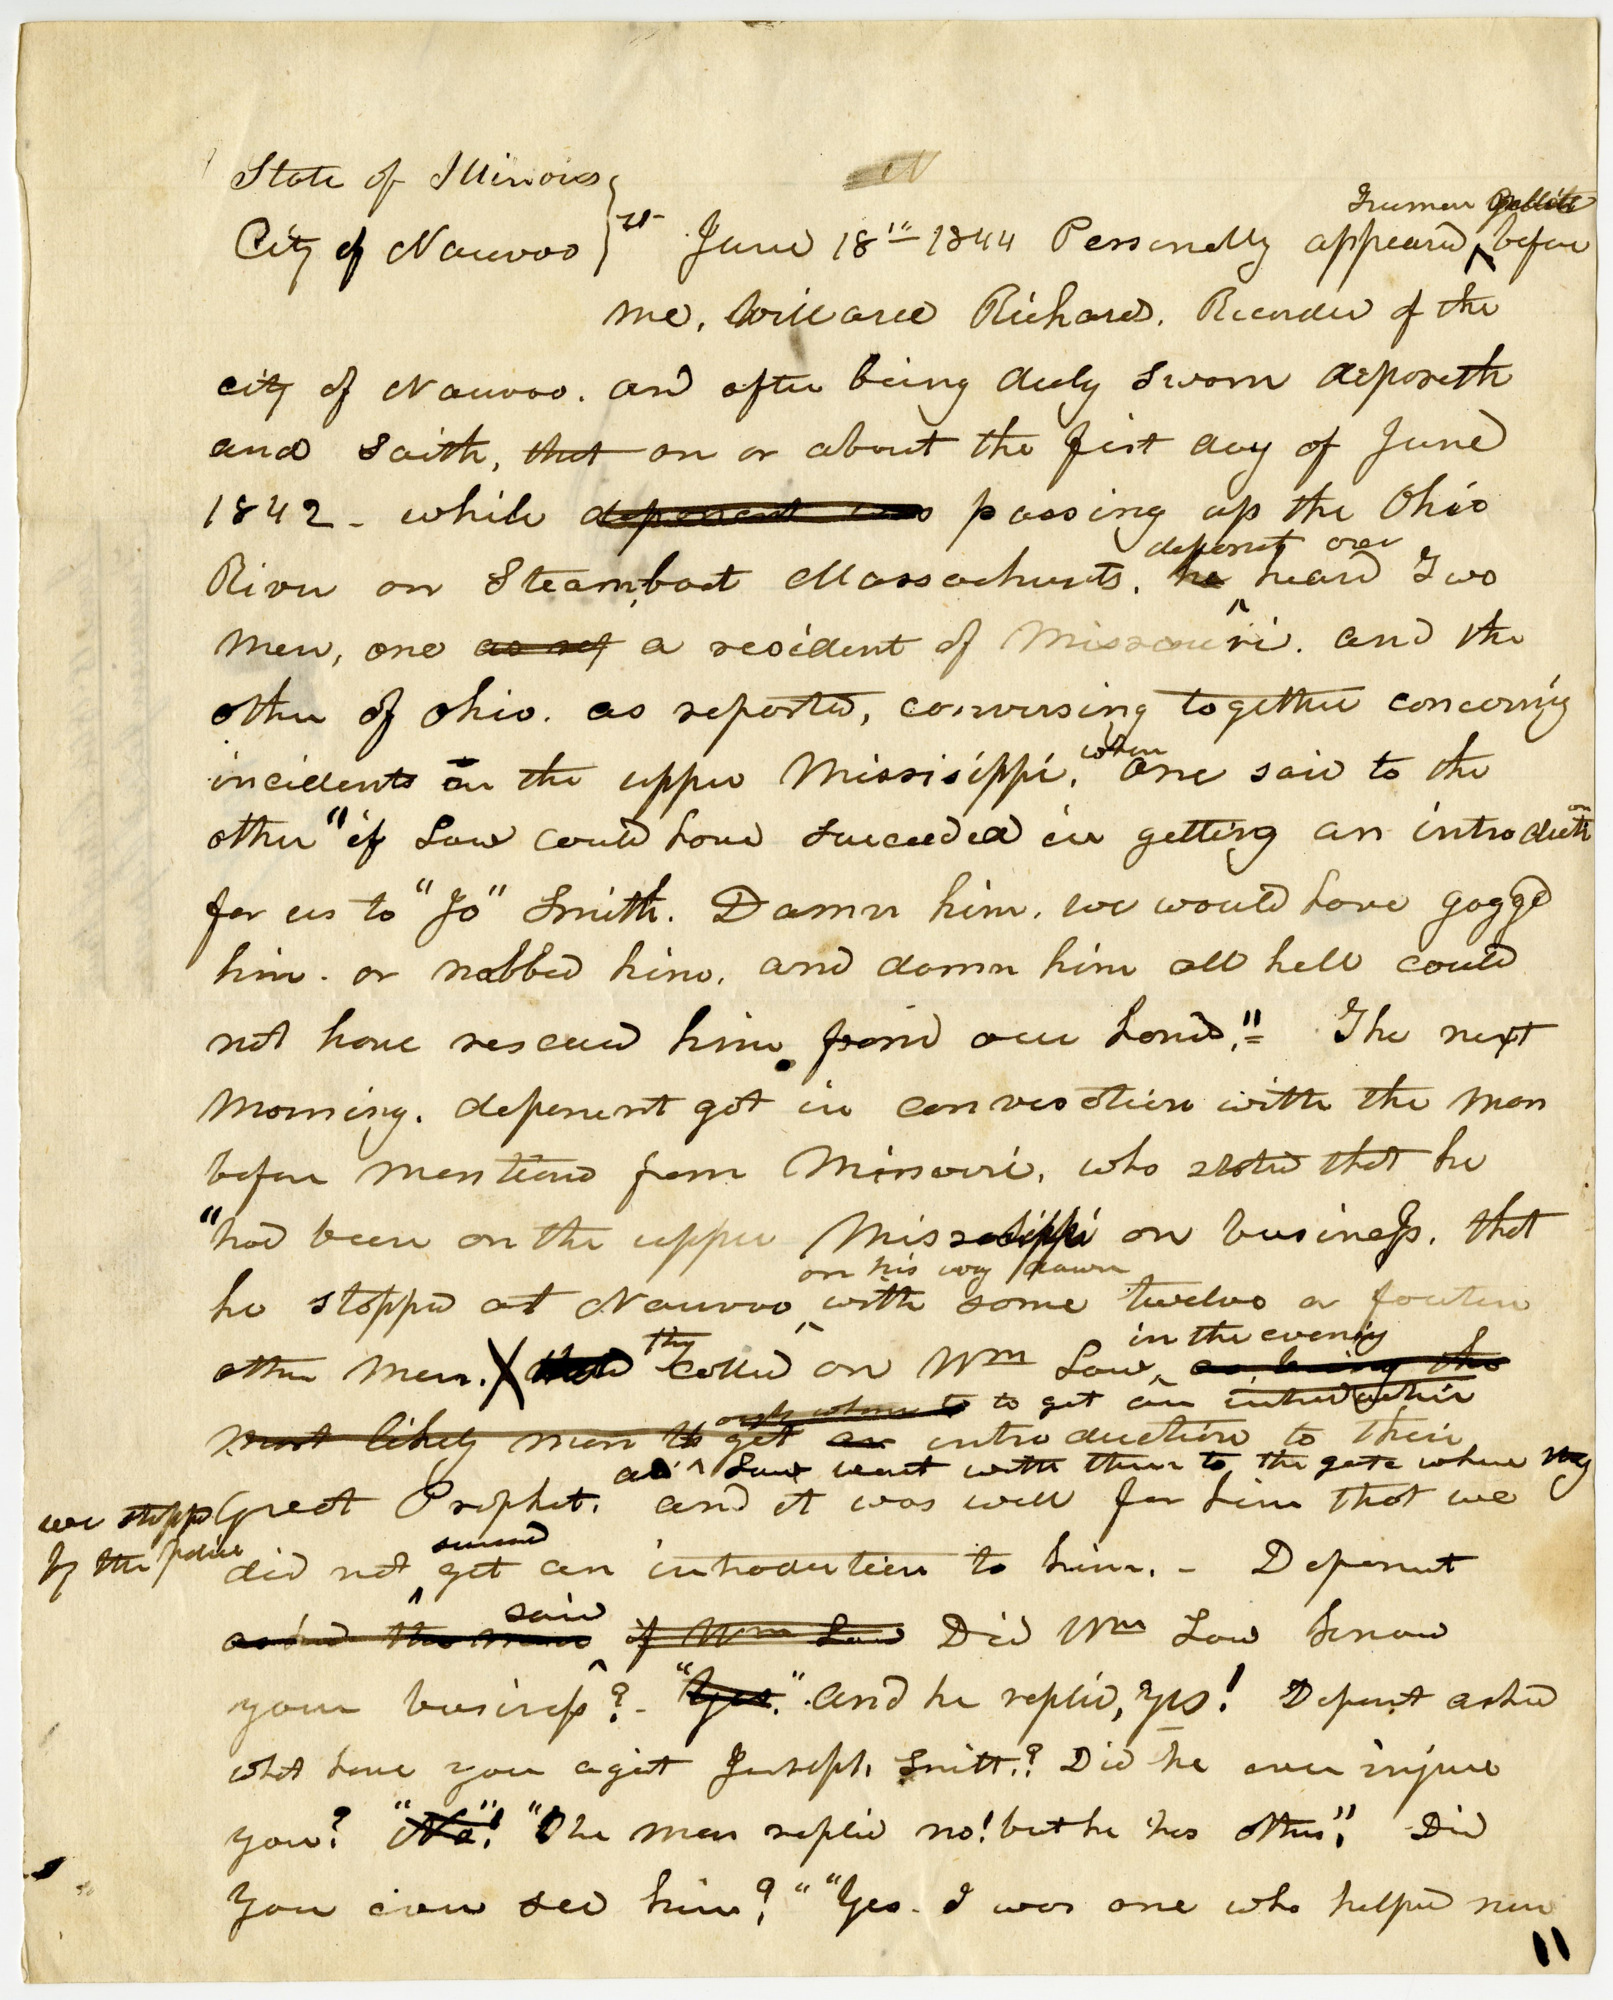 State of Illinois
City of Nauvoo } ss June 18th 1844 Personally appeared Truman Gillett before
me, Willard Richards. Recorder of the
city of Nauvoo. and after being duly sworn deposeth
and saith, that on or about the first day of June
1842 - while deponent was passing up the Ohio
River on Steamboat Massachusetts. he deponent over heard Two
men, one a resident of Missouri. and the
other of Ohio. as reported, conversing together concerning
incidents on the upper Missisippi, when One said to the
other "if Law could have succeeded in getting an introduction
for us to "Jo" Smith. Damn him. we would have gaggd
him. or nabbed him. and damn him all hell could
not have rescued him from our hands." The next
morning. deponent got in convesation with the man
before mentiond from Missouri, who stated that he
"had been on the upper Missisippi on business. that
he stopped at Nauvoo on his way down with some twelve or fourteen
other men. they called on Wm Law in the evening as being the
most likely man to ask whom to to get an introduction
get an introduction to their
and Law went with them to the gate where
Great Prophet. and it was well for him that we
we stoppd
by the police
did not succeed get an introduction to him. - Deponent
asked the man said if Wm Law Did Wm Law know
your business? - "Yes." and he replied, Yes! Deponent asked
what have you against Joseph Smith? Did he ever injure
you? "No"! "The man replied no! but he has others". Did
you ever see him?" "Yes. I was one who helped run
11